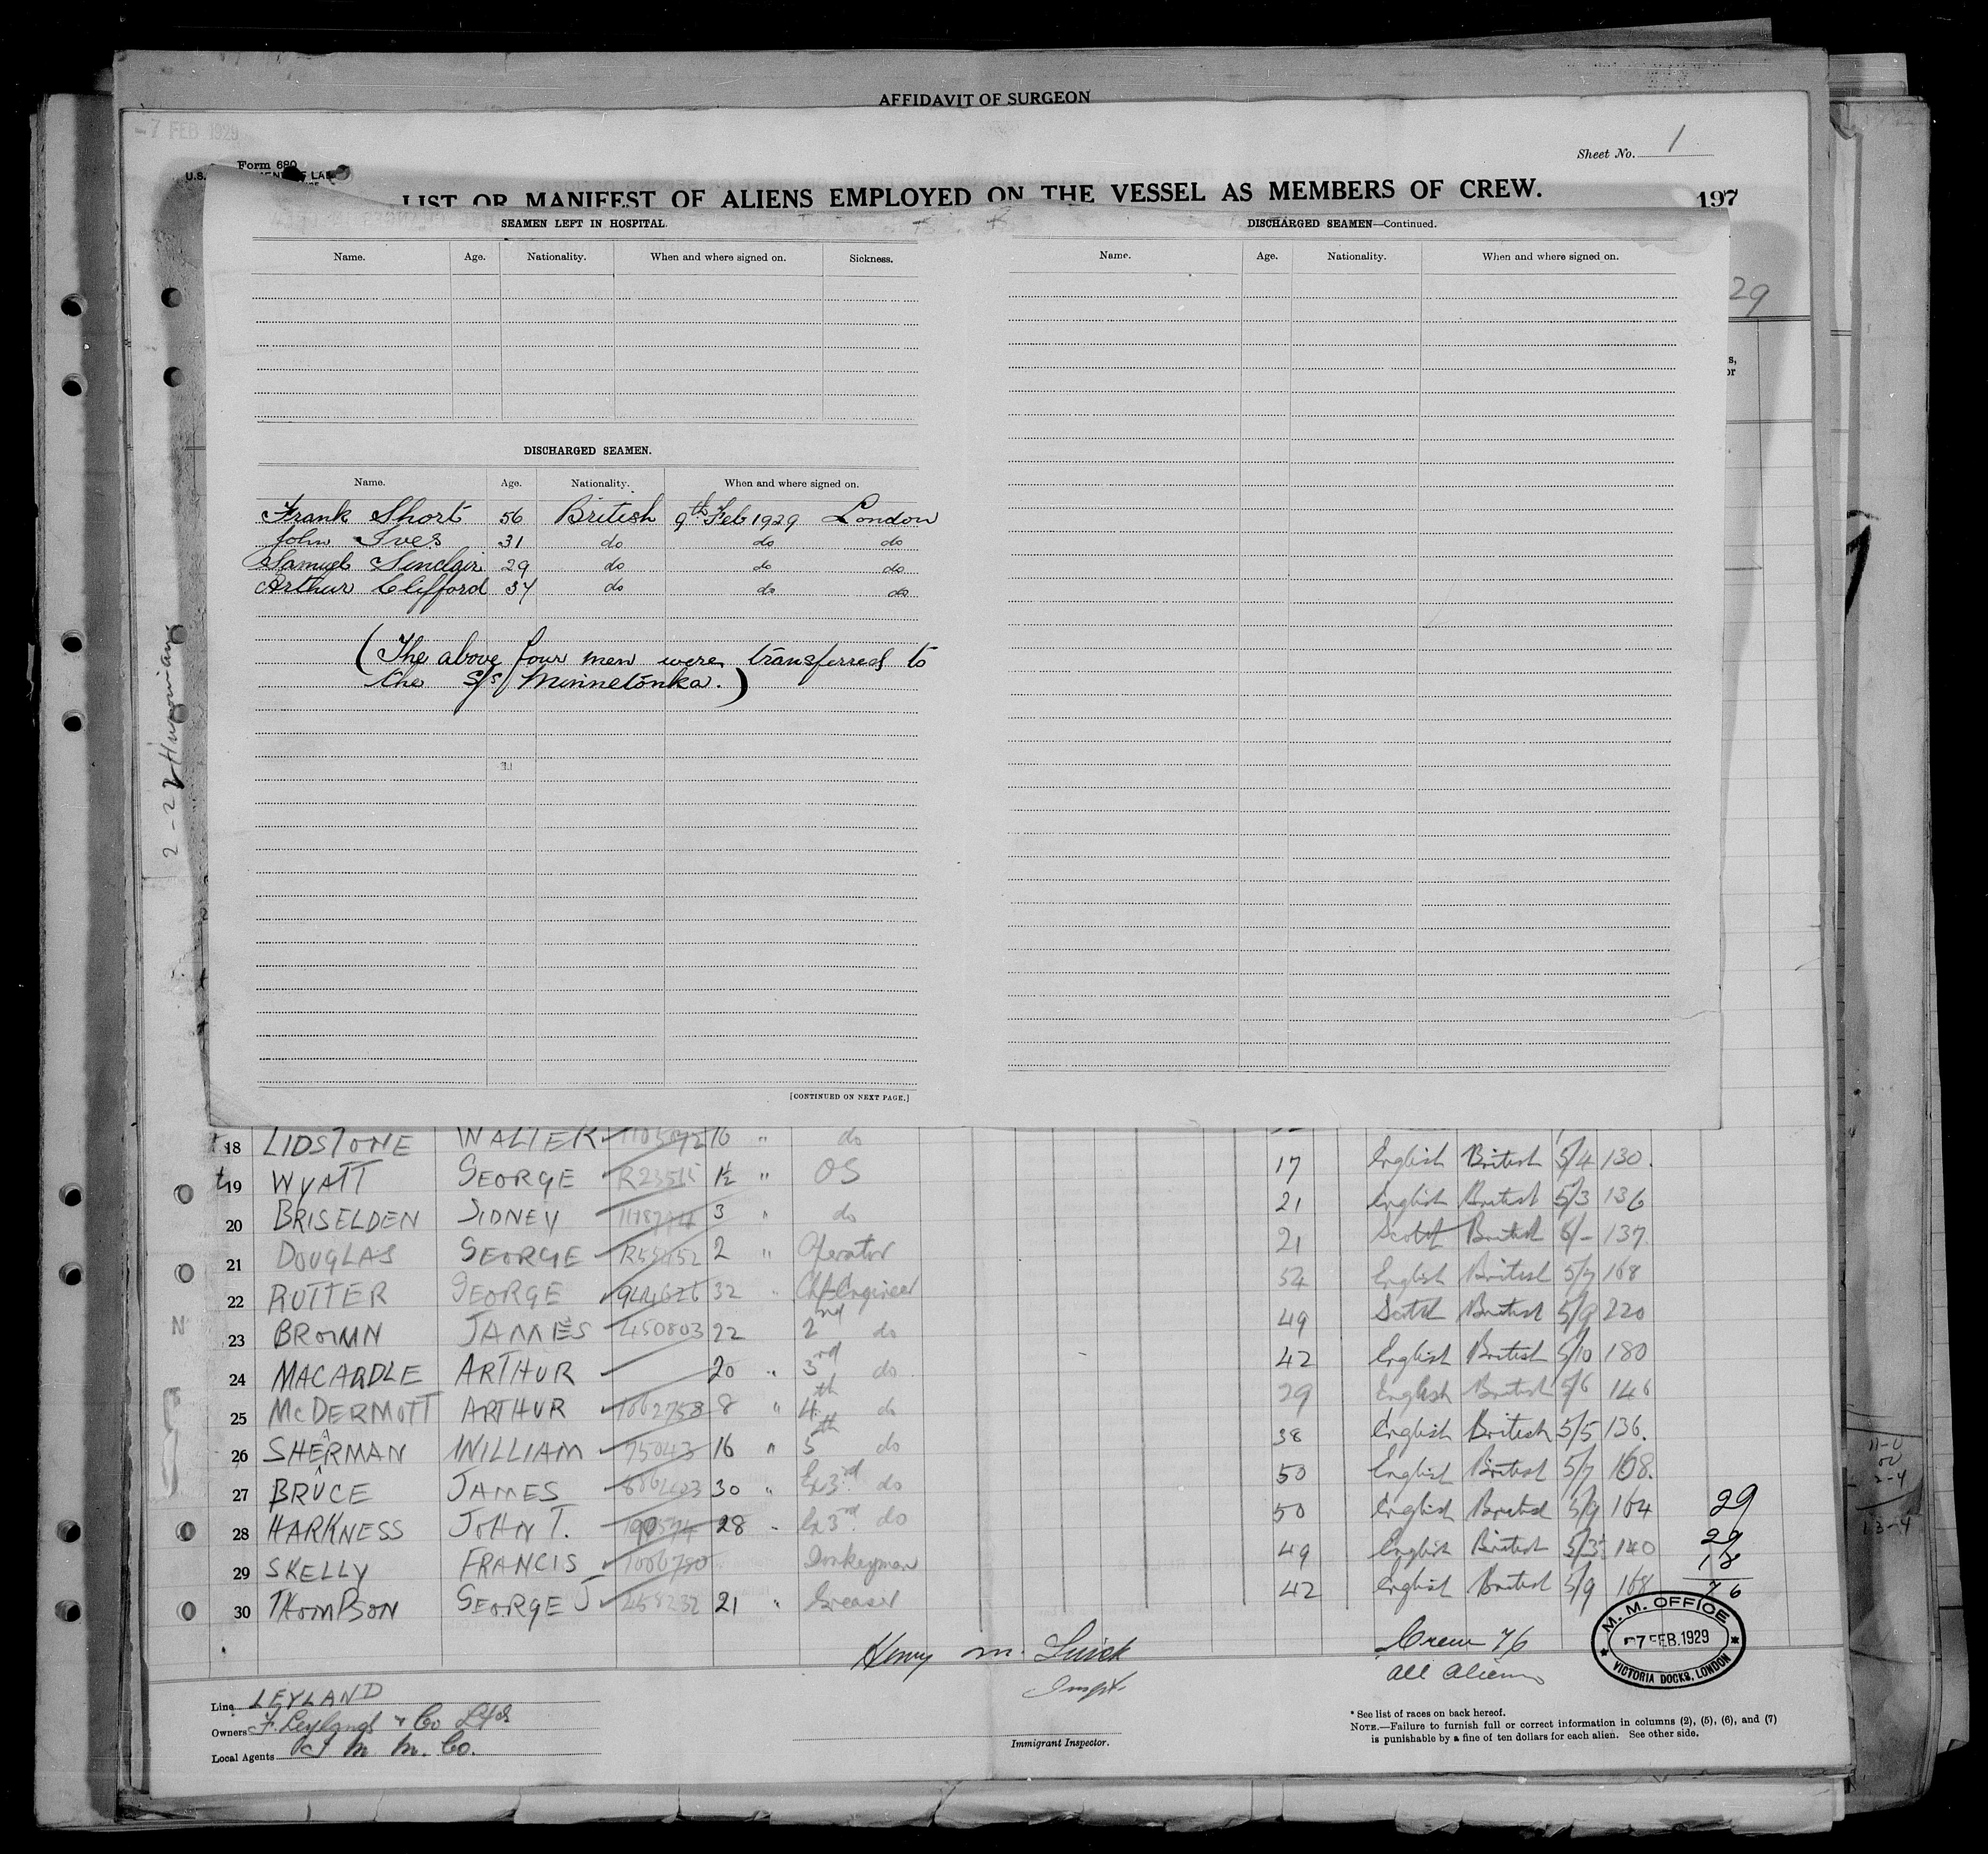 AFFIDAVIT OF SURGEON
-7 FEB 1929
Form 680
Sheet No. 1
LIST OR MANIFEST OF ALIENS EMPLOYED ON THE VESSEL AS MEMBERS OF CREW.
197
SEAMEN LEFT IN HOSPITAL.
Name. Age. Nationality. When and where signed on. Sickness.
DISCHARGED SEAMEN—Continued.
Name. Age. Nationality. When and where signed on.
29
DISCHARGED SEAMEN.
Name. Age. Nationality. When and where signed on.
Frank Short 56 British 9th Feb 1929 London
John Ives 31 do do do
Samuel Sinclair 29 do do do
Arthur Clifford 34 do do do
(The above four men were transferred to
the S/S Minnetonka.)
[CONTINUED ON NEXT PAGE.]
18 LIDSTONE WALTER 16 " do
19 WYATT GEORGE 1½ " OS 17 English British 5/4 130.
20 BRISELDEN SIDNEY 3 " do 21 English British 5/3 136
21 DOUGLAS GEORGE 2 " Operator 21 Scotch British 6/- 137
22 RUTTER GEORGE 32 " Chf Engineer 54 English British 5/7 168
23 BROWN JAMES 450803 22 2nd do 49 Scotch British 5/9 220
24 MACARDLE ARTHUR 20 " 3rd do 42 English British 5/10 180
25 McDERMOTT ARTHUR 1062758 8 " 4th do 29 English British 5/6 146
26 SHERMAN WILLIAM 75043 16 " 5th do 38 English British 5/5 136.
27 BRUCE JAMES 30 " Ex 3rd do 50 English British 5/7 168.
28 HARKNESS JOHN T. 28 " Ex 3rd do 50 English British 5/9 164 29
29 SKELLY FRANCIS 1006780 Donkeyman 49 English British 5/3 140 29
18
30 THOMPSON GEORGE J 458232 21 " Greaser 42 English British 5/9 168 76
Crew 76
All Aliens
M. M. OFFICE
7 FEB. 1929
VICTORIA DOCKS, LONDON
Line LEYLAND
Owners F. Leyland & Co Ltd
Local Agents I M M. Co.
Henry M.
Inspt.
Immigrant Inspector.
* See list of races on back hereof.
NOTE.—Failure to furnish full or correct information in columns (2), (5), (6), and (7)
is punishable by a fine of ten dollars for each alien. See other side.